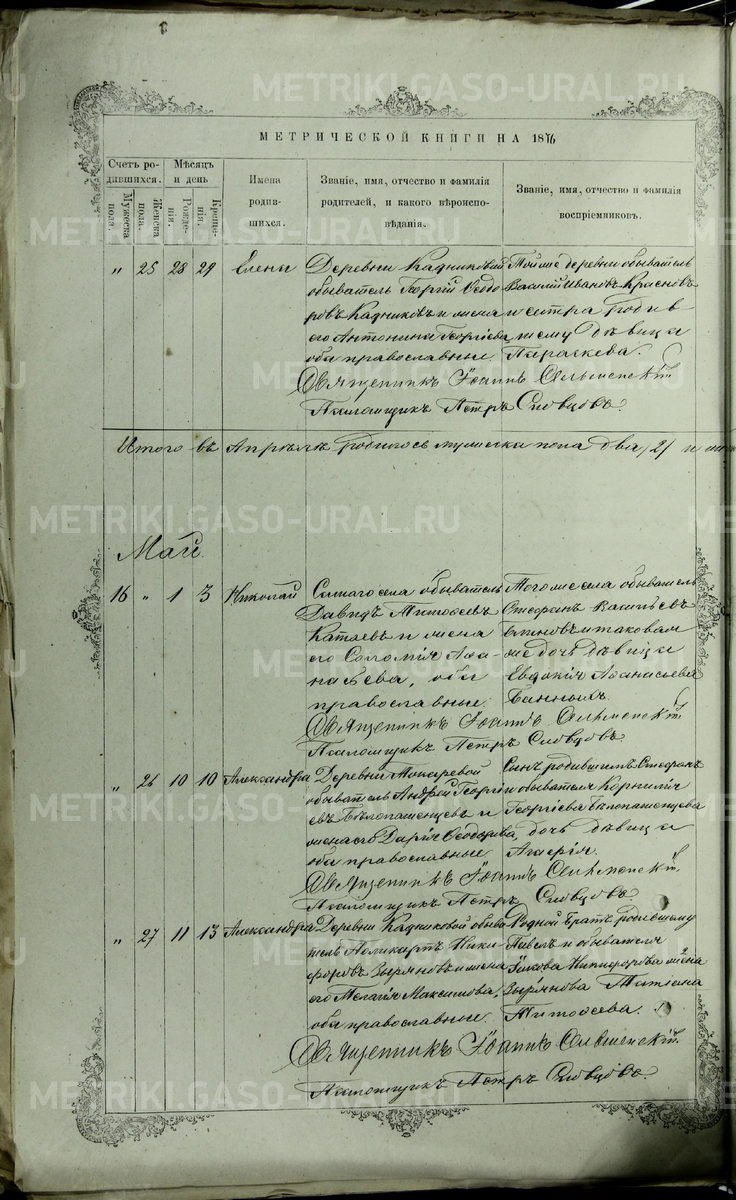 METRIKI.GASO-URAL.RU
МЕТРИЧЕСКОЙ КНИГИ НА 1876
Счетъ родившихся.
Мужеска пола.
Женска пола.
Мѣсяцъ и день
Рожденія.
Крещенія.
Имена родившихся.
Званіе, имя, отчество и фамилія родителей, и какого вѣроисповѣданія.
Званіе, имя, отчество и фамилія воспріемниковъ.
" 25 28 29 Елена
Деревни Кадниковой
обыватель Георгій Ѳеодо
ровъ Кадниковъ и жена
его Антонина Георгіева
оба православные.
Той же деревни обыватель
Василій Ивановъ Краснов
и сестра родив
шему дѣвица
Параскева.
Священникъ Іоаннъ
Псаломщикъ Петръ Словцовъ.
Итого въ Апрѣлѣ родилось мужеска пола два /2/ и
Май.
16 " 1 3 Николай
обыватель
Давидъ Тимоѳеевъ
Катаевъ и жена
его Соломія Аѳа-
насьева, оба
православные.
Того же села обыватель
Стефанъ Васильевъ
дочь дѣвица
Евдокія Аѳанасьева
Банныхъ.
Священникъ Іоаннъ
Псаломщикъ Петръ Словцовъ.
" 26 10 10 Александра
Деревни Токаревой
обыватель Андрей Георгі
евъ Бѣлопашенцевъ и
жена его Дарія Ѳеодорова,
оба православные.
Сынъ родившимъ Стефанъ
и обывателя Корнилія
Георгіева Бѣлопашенцева
дочь дѣвица
Священникъ Іоаннъ
Псаломщикъ Петръ Словцовъ.
" 27 11 13 Александра
Деревни Кадниковой обыва
тель Поликарпъ Ники
форовъ Зыряновъ и жена
его Пелагія Максимова,
оба православные.
Родной братъ родившему
Павелъ и обывателя
Іакова Никифорова
Зырянова жена Татіана
Тимоѳеева.
Священникъ Іоаннъ
Псаломщикъ Петръ Словцовъ.